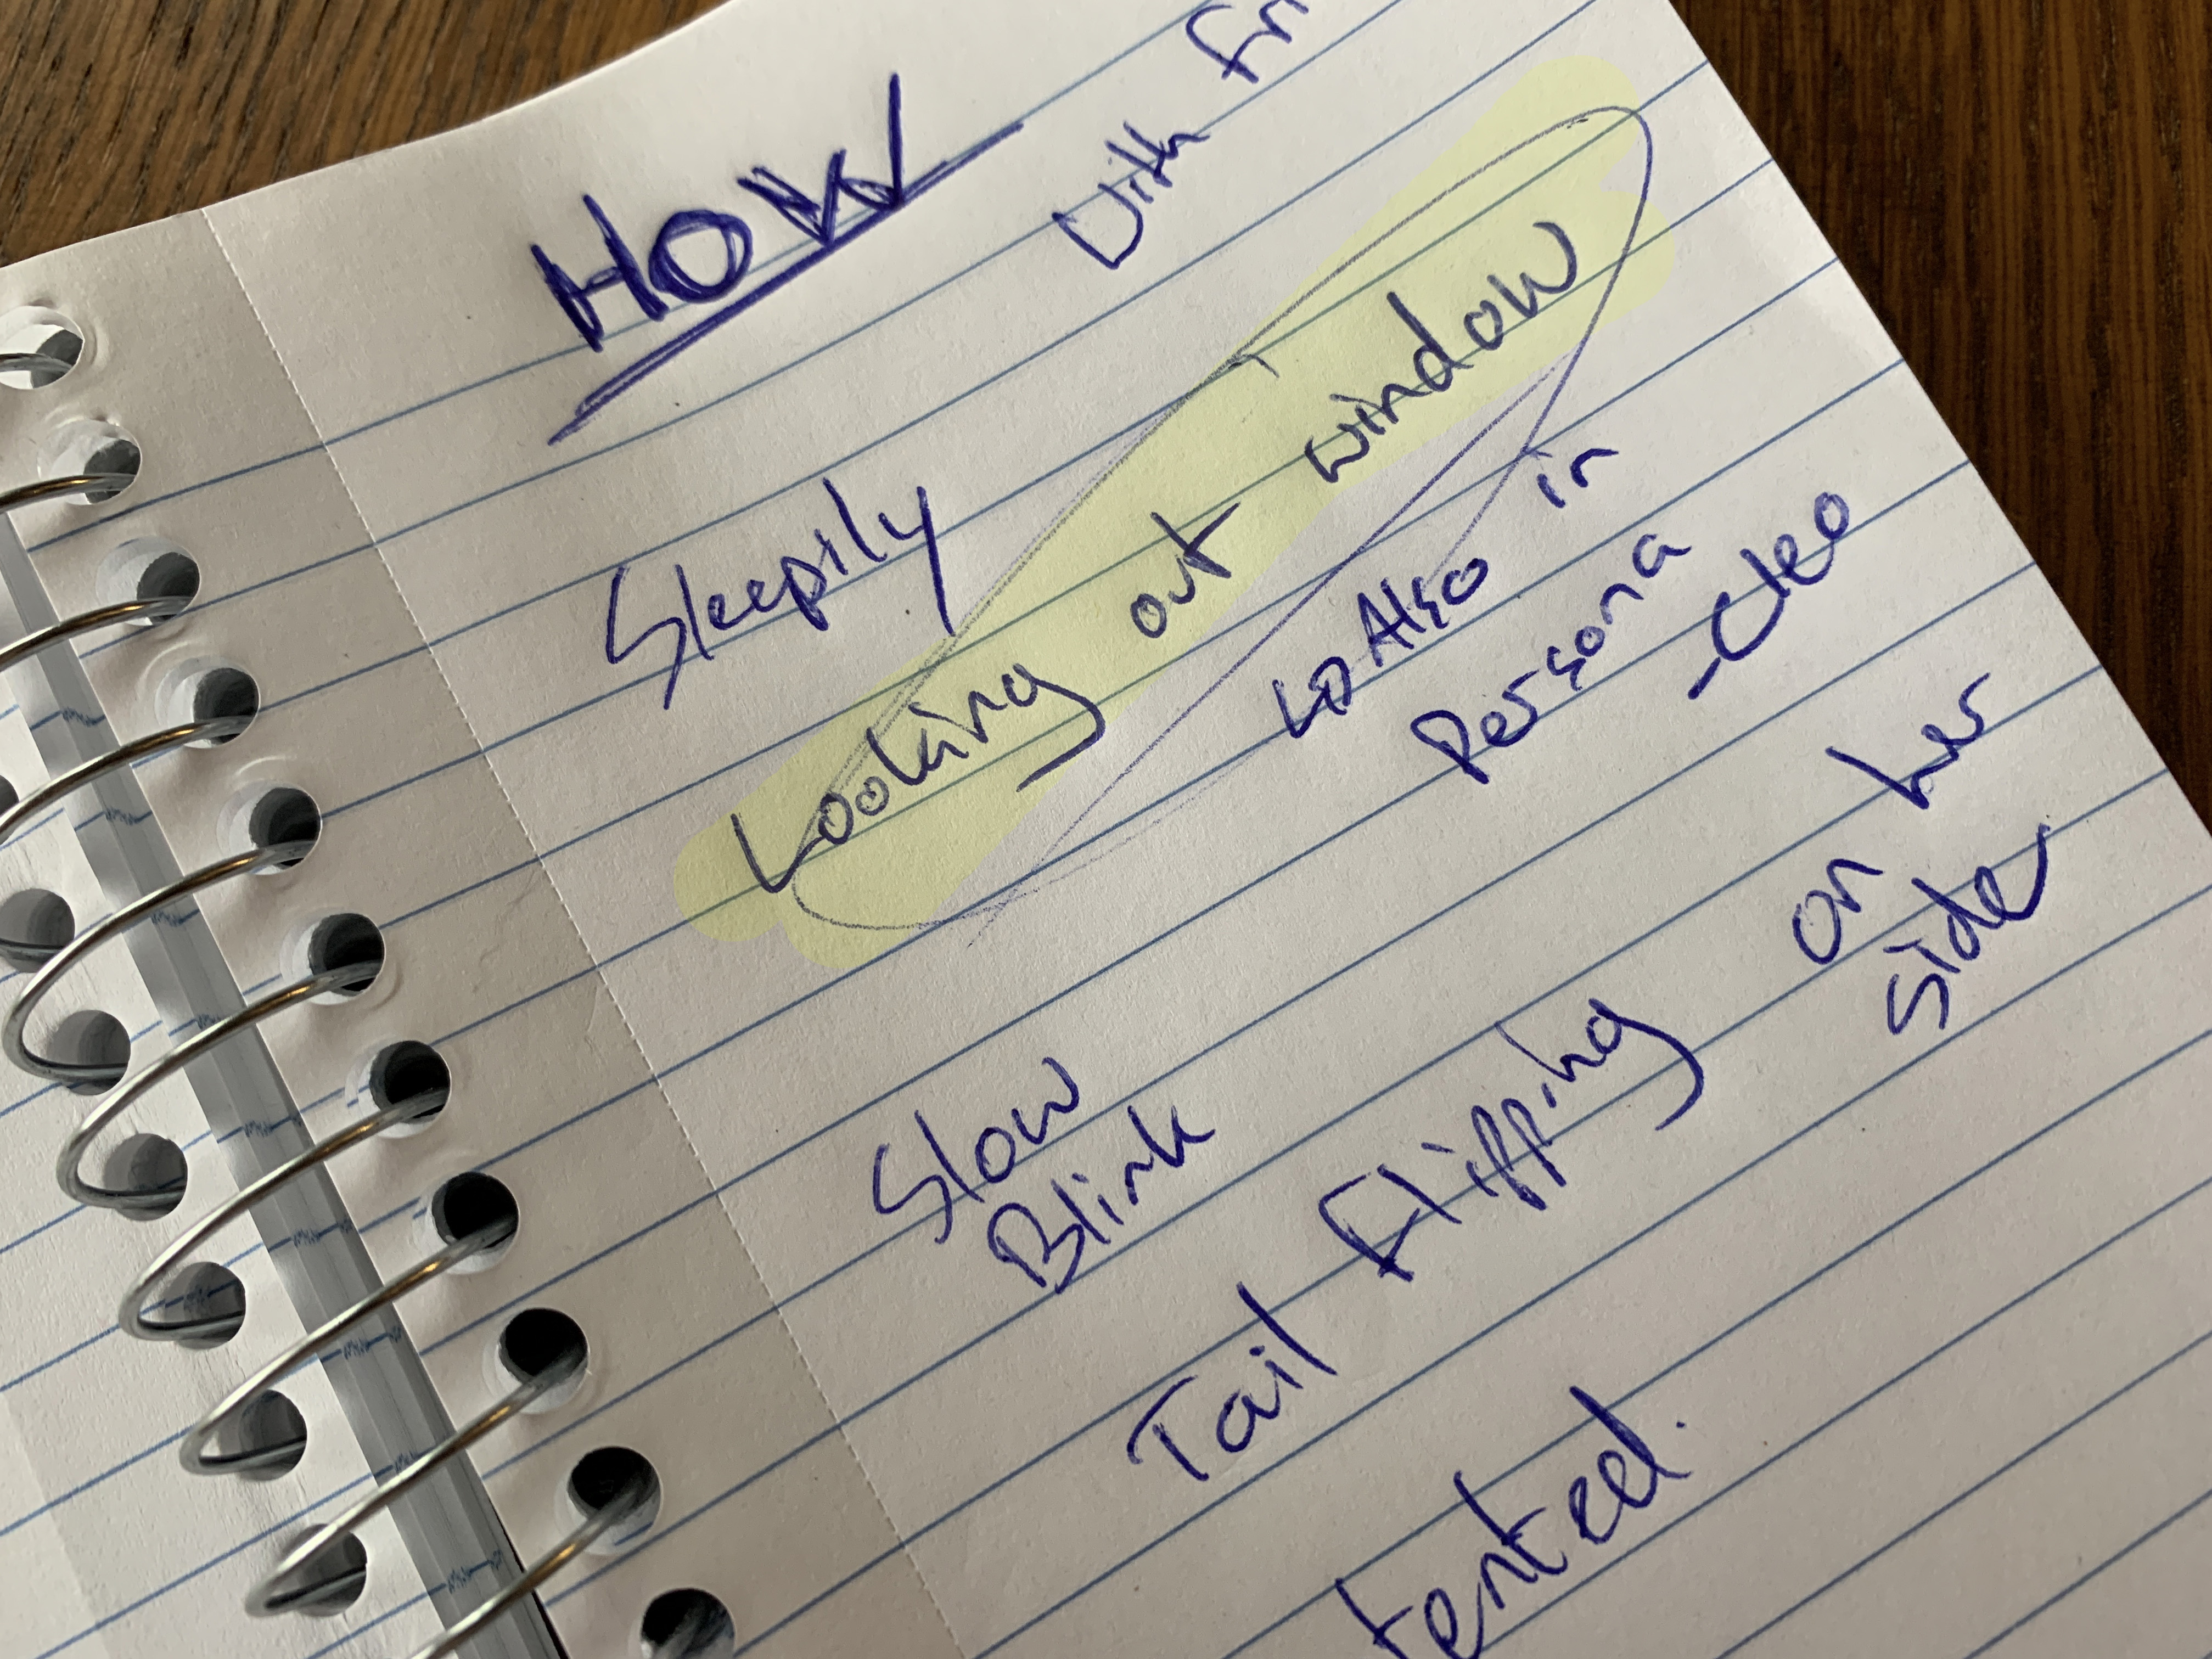 HOW
With
Sleepily
Looking out window
Also in
Persona
-Cleo
Slow
Blink
Tail Flipping on her
side
tented.